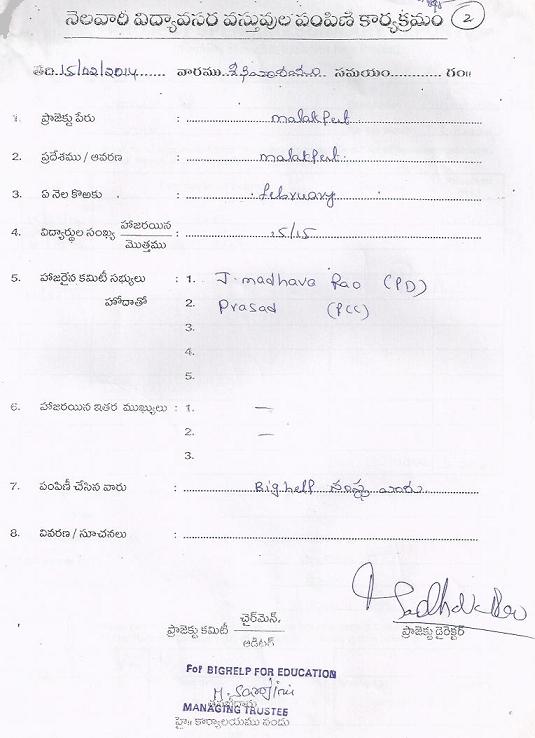 నెలవారీ విద్యావసర వస్తువుల పంపిణీ కార్యక్రమం 2
తేది.15/02/2014....... వారము..శనివారము.. సమయం............ గం॥
1. ప్రాజెక్టు పేరు : malakpet
2. ప్రదేశము / ఆవరణ : malakpet.
3. ఏ నెల కొఱకు : february
4. విద్యార్థుల సంఖ్య హాజరయిన / మొత్తము : 15/15
5. హాజరైన కమిటీ సభ్యులు : 1. J. madhava Rao (PD)
హోదాతో 2. Prasad (PCC)
3.
4.
5.
6. హాజరయిన ఇతర ముఖ్యులు : 1. —
2. —
3.
7. పంపిణీ చేసిన వారు : Bighelp సంస్థ వారు
8. వివరణ / సూచనలు :
ప్రాజెక్టు కమిటీ చైర్మెన్. / ఆడిటర్
ప్రాజెక్టు డైరెక్టర్
For BIGHELP FOR EDUCATION
M. Sarojini
MANAGING TRUSTEE
హై॥ కార్యాలయము నందు